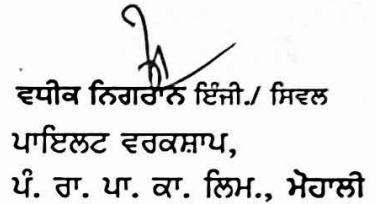 ਵਧੀਕ ਨਿਗਰਾਨ ਇੰਜੀ./ ਸਿਵਲ
ਪਾਇਲਟ ਵਰਕਸ਼ਾਪ,
ਪੰ. ਰਾ. ਪਾ. ਕਾ. ਲਿਮ., ਮੋਹਾਲੀ